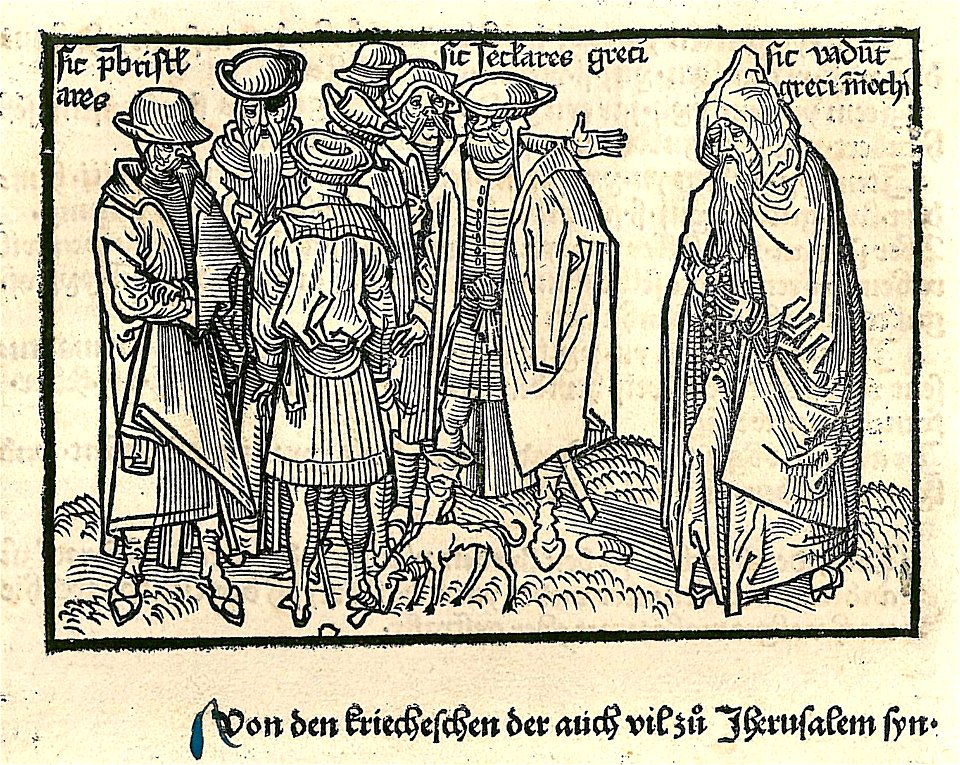 sic p̄bristk
ares
sic seckares greci
sic vadūt
greci m̄ochi
Von den kriecheschen der auch vil zů Jherusalem syn·